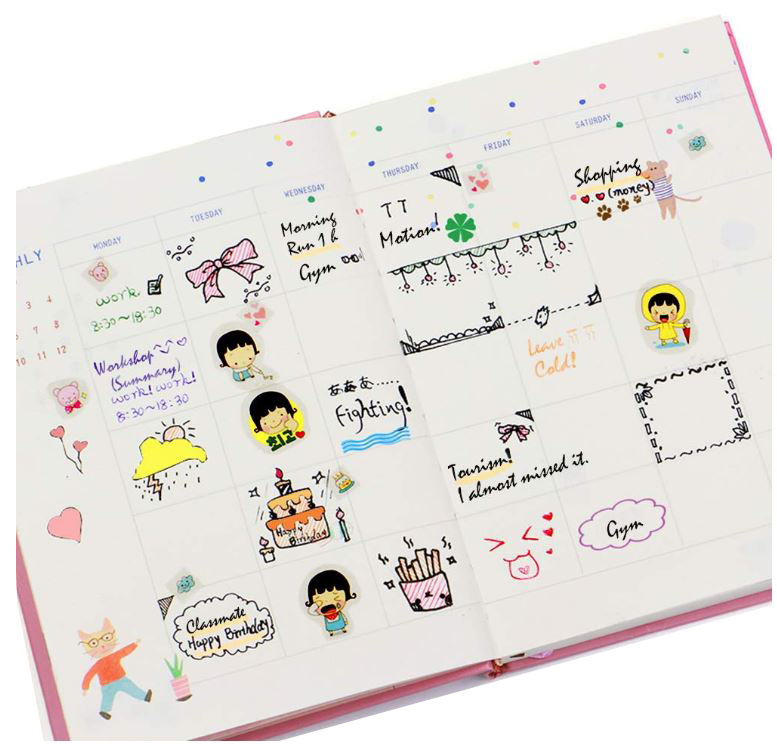 HLY
MONDAY
TUESDAY
WEDNESDAY
THURSDAY
FRIDAY
SATURDAY
SUNDAY
3 4
6 7 8
10 11 12
work
8:30~18:30
Morning
Run 1 h
Gym
TT
Motion!
Shopping
(money)
Workshop
(Summary)
work! work!
8:30~18:30
Leave TT TT
Cold!
최고
あああ......
Fighting!
Tourism!
I almost missed it.
Happy
Birthday
Gym
Classmate
Happy Birthday